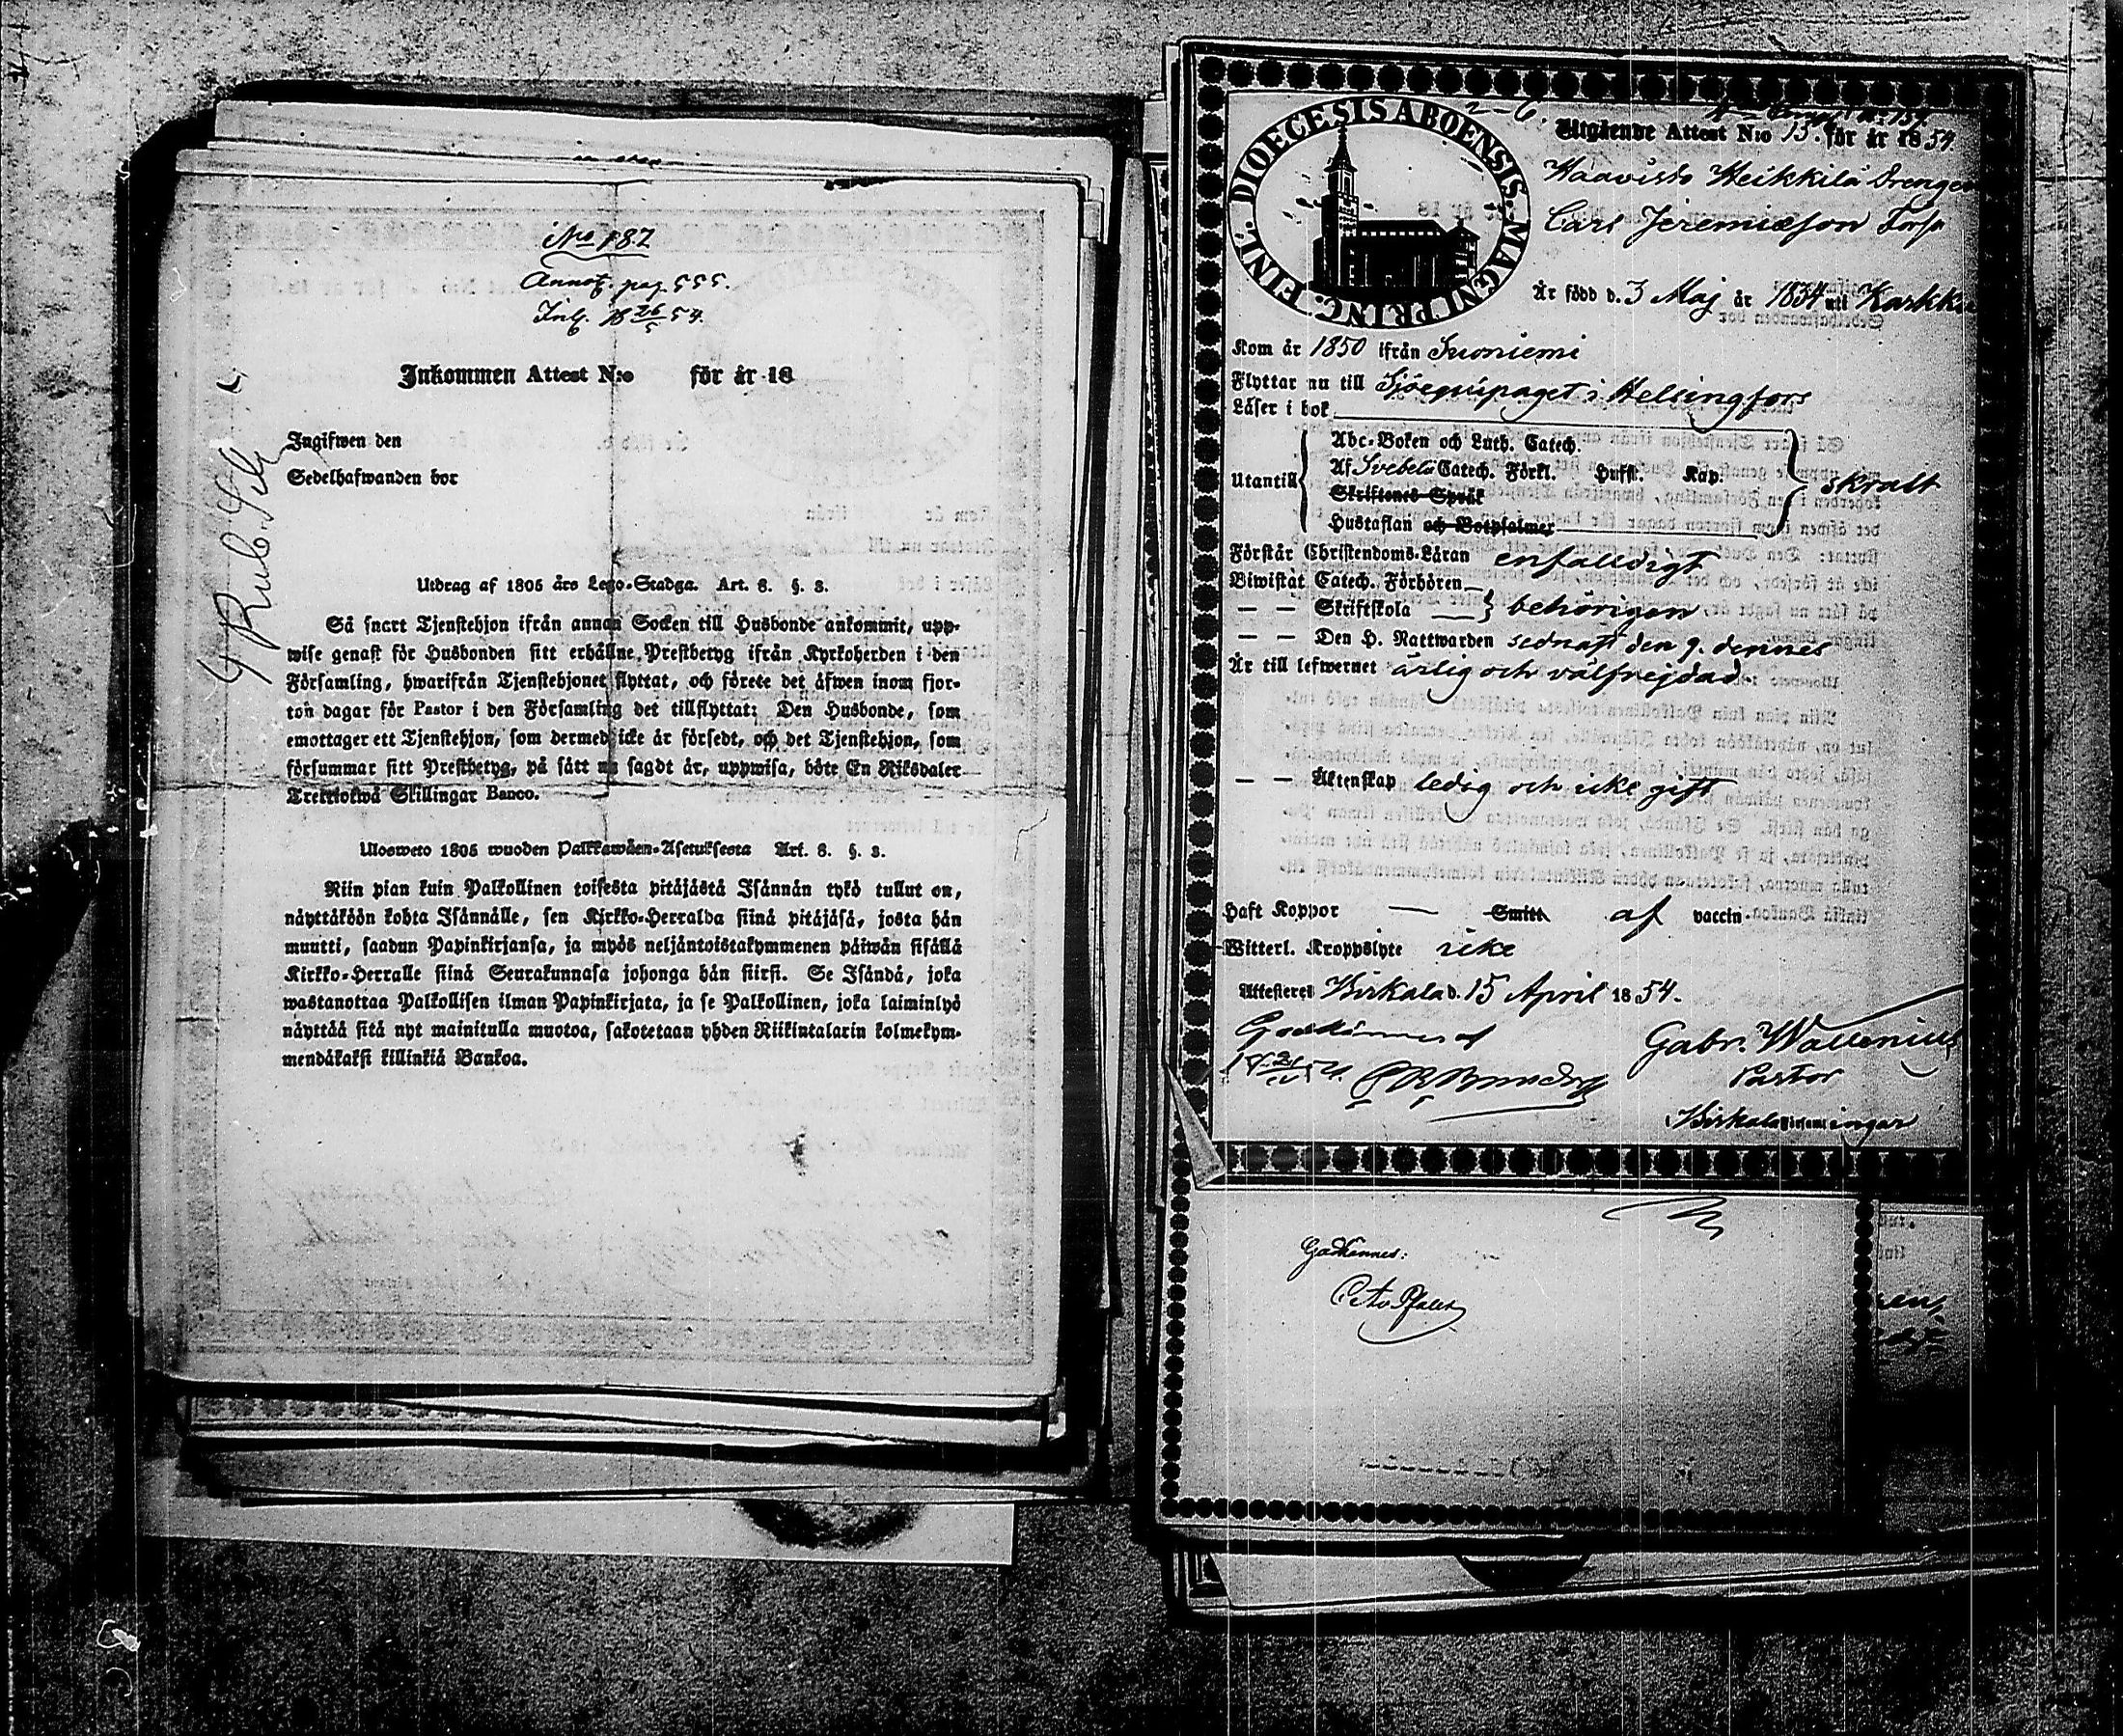 No 187
Annot. pag. 555.
Inl. 18 26/5 54.
Inkommen Attest N:o för år 18
Ingifwen den
Sedelhafwanden bor
4 Rub. Silf
Utdrag af 1805 års Lego-Stadga. Art. 8. §. 3.
Så snart Tjenstehjon ifrån annan Socken till Husbonde ankommit, upp-
wise genast för Husbonden sitt erhållne Prestbetyg ifrån Kyrkoherden i den
Församling, hwarifrån Tjenstehjonet flyttat, och förete det äfwen inom fjor-
ton dagar för Pastor i den Församling det tillflyttat: Den Husbonde, som
emottager ett Tjenstehjon, som dermed icke är försedt, och det Tjenstehjon, som
försummar sitt Prestbetyg, på sätt nu sagdt är, uppwisa, böte En Riksdaler
Trettiotwå Skillingar Banco.
Ulosweto 1805 wuoden Palkkawäen-Asetuksesta Art. 8. §. 3.
Niin pian kuin Palkollinen toisesta pitäjästä Isännän tykö tullut on,
näyttäköön kohta Isännälle, sen Kirkko-Herralda siinä pitäjäsä, josta hän
muutti, saadun Papinkirjansa, ja myös neljäntoistakymmenen päiwän sisällä
Kirkko-Herralle siinä Seurakunnasa johonga hän siirsi. Se Isändä, joka
wastanottaa Palkollisen ilman Papinkirjata, ja se Palkollinen, joka laiminlyö
näyttää sitä nyt mainitulla muotoa, sakotetaan yhden Riikintalarin kolmekym-
mendäkaksi killinkiä Bankoa.
FINL. DIOECESIS ABOENSIS. MAGNI PRINC.
2-6.
Utgående Attest N:o 15. för år 1854
Haavisto Heikkilä Drengen
Carl Jeremiæson
Är född d. 3 Maj år 1834 uti Karkku
Kom år 1850 ifrån Suoniemi
Flyttar nu till Sjöequipaget i Helsingfors
Läser i bok
Abc-Boken och Luth. Catech.
Utantill Af Svebelii Catech. Förkl. Hufst. Kap. skralt
Skriftenes Språk
Hustaflan och Botpsalmer
Förstår Christendoms-Läran enfalldigt
Biwistat Catech. Förhören
— — Skriftskola behörigen
— — Den H. Nattwarden sednast den 9. dennes
Är till lefwernet ärlig och välfrejdad
— — Äktenskap ledig och icke gift
Haft Koppor — Smitt af vaccin
Witterl. Kroppslyte icke
Attesteret Birkala d. 15 April 1854.
Godkännes
Gabr. Wallenius
Pastor
Birkala
Godkännes: